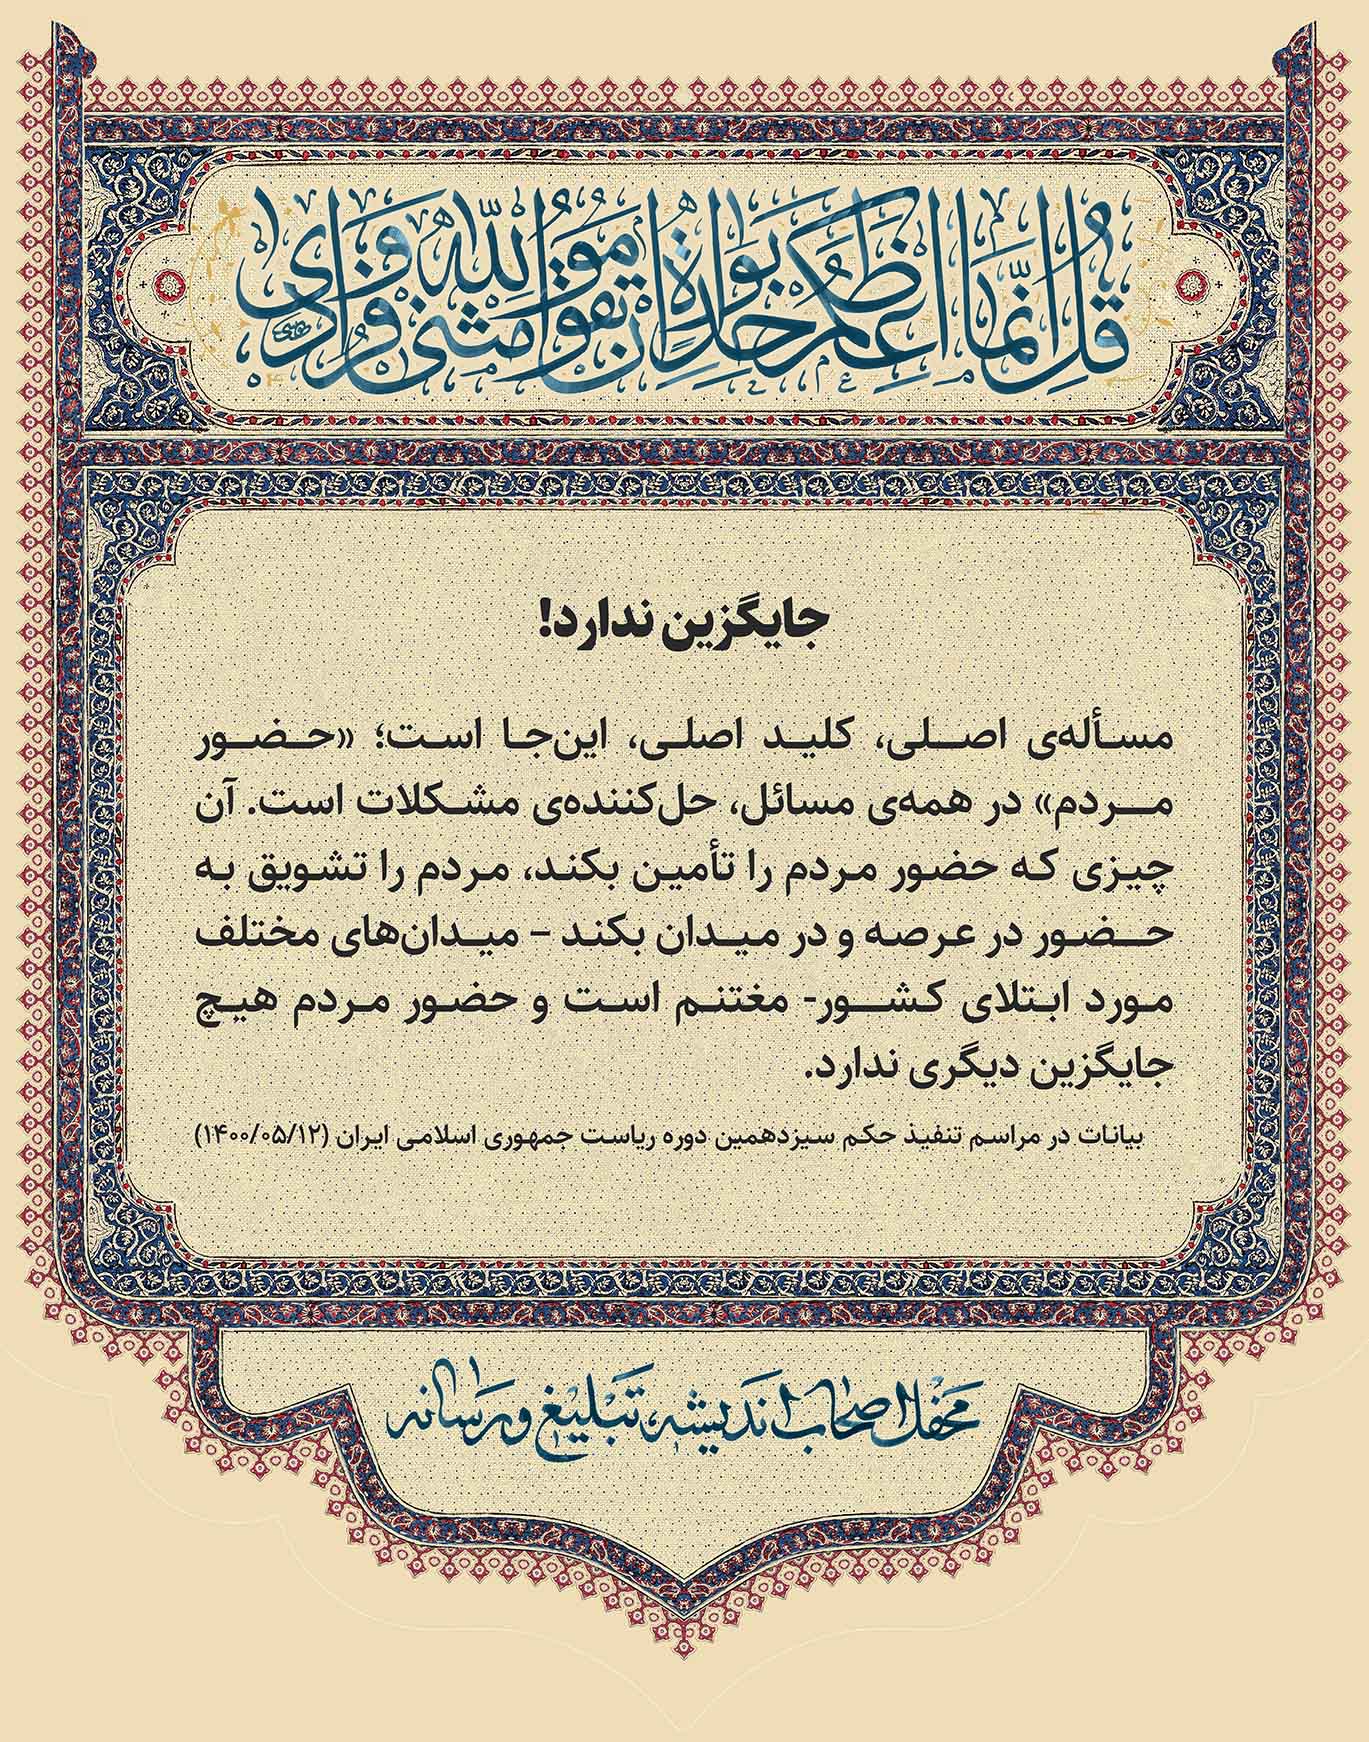 قُلْ إِنَّمَا أَعِظُكُمْ بِوَاحِدَةٍ أَنْ تَقُومُوا لِلَّهِ مَثْنَىٰ وَفُرَادَىٰ
جایگزین ندارد!
مسأله‌ی اصلی، کلید اصلی، این‌جا است؛ «حضور
مردم» در همه‌ی مسائل، حل‌کننده‌ی مشکلات است. آن
چیزی که حضور مردم را تأمین بکند، مردم را تشویق به
حضور در عرصه و در میدان بکند – میدان‌های مختلف
مورد ابتلای کشور- مغتنم است و حضور مردم هیچ
جایگزین دیگری ندارد.
بیانات در مراسم تنفیذ حکم سیزدهمین دوره ریاست جمهوری اسلامی ایران (۱۴۰۰/۰۵/۱۲)
محفل اصحاب اندیشه، تبلیغ و رسانه